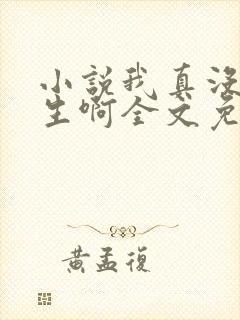 小說我真沒
生啊全文免
黃孟復